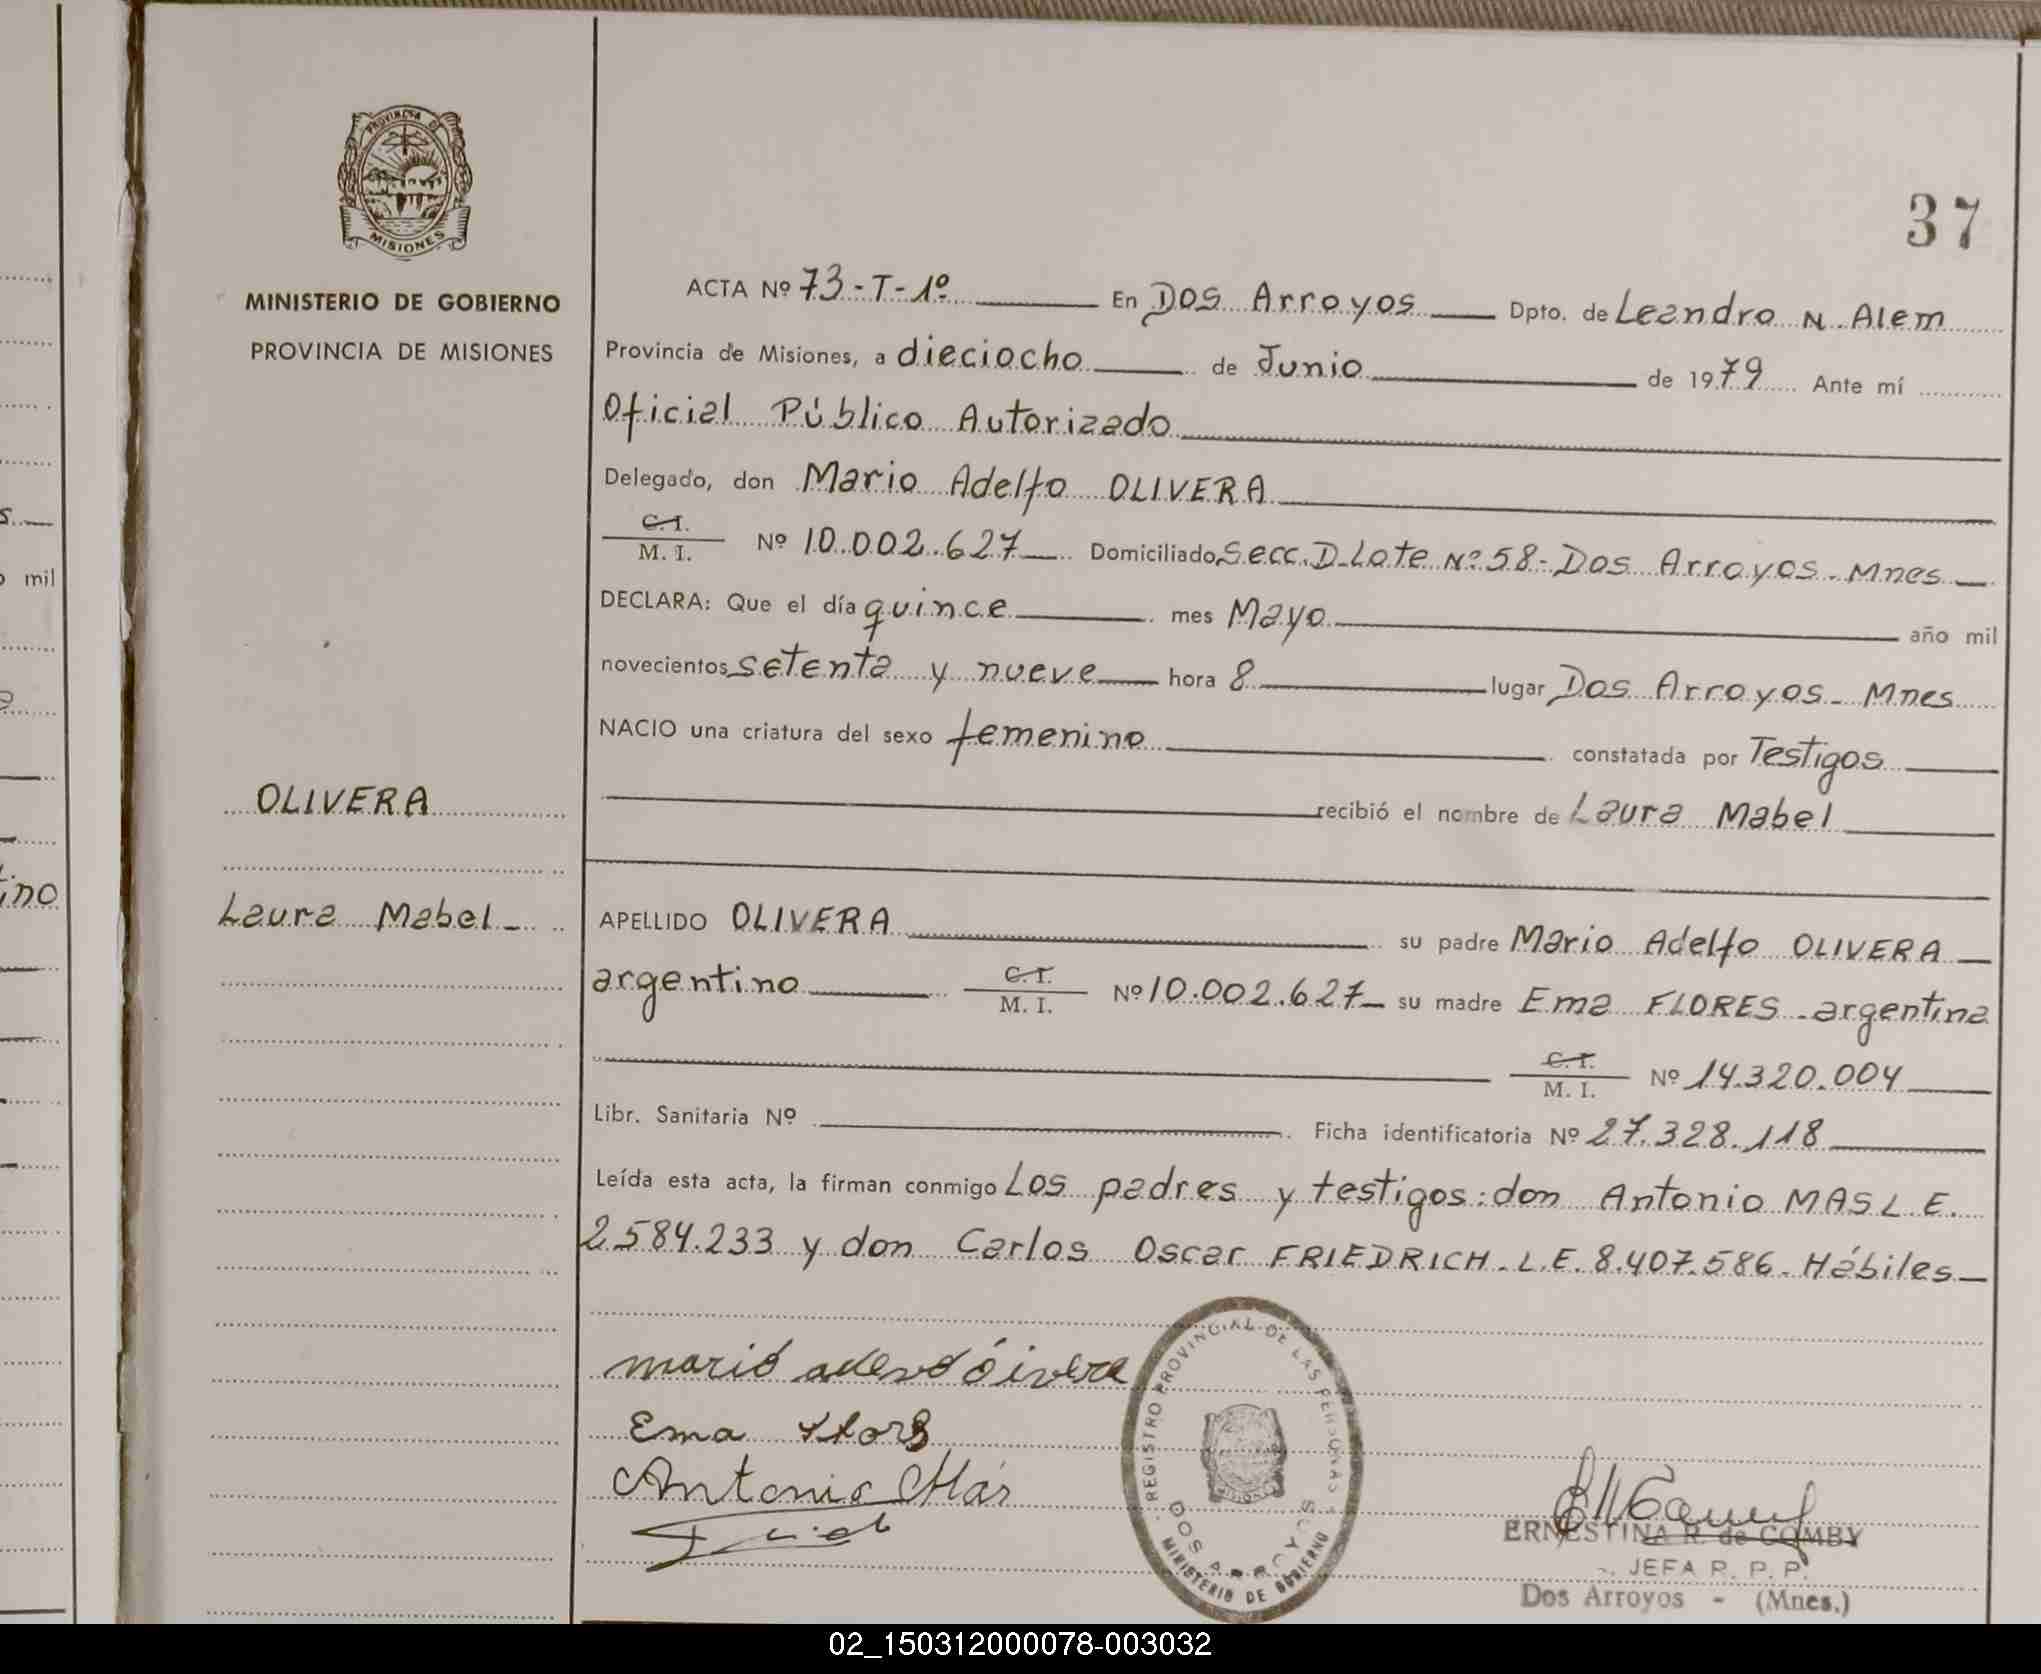 PROVINCIA DE
MISIONES
MINISTERIO DE GOBIERNO
PROVINCIA DE MISIONES
OLIVERA
Laura Mabel
37
ACTA Nº 73-T-1º En Dos Arroyos Dpto. de Leandro N. Alem
Provincia de Misiones, a dieciocho de Junio de 1979 Ante mí
Oficial Público Autorizado
Delegado, don Mario Adelfo OLIVERA
C.I.
M. I. Nº 10.002.627 Domiciliado Secc. D-Lote Nº 58-Dos Arroyos-Mnes
DECLARA: Que el día quince mes Mayo año mil
novecientos setenta y nueve hora 8 lugar Dos Arroyos-Mnes
NACIO una criatura del sexo femenino constatada por Testigos
recibió el nombre de Laura Mabel
APELLIDO OLIVERA su padre Mario Adelfo OLIVERA
argentino C.I. M. I. Nº 10.002.627 su madre Ema FLORES-argentina
C.I. M. I. Nº 14.320.004
Libr. Sanitaria Nº Ficha identificatoria Nº 27.328.118
Leída esta acta, la firman conmigo Los padres y testigos: don Antonio MAS L.E.
2.584.233 y don Carlos Oscar FRIEDRICH-L.E. 8.407.586-Hábiles
Ema
Antonio Más
REGISTRO PROVINCIAL DE LAS PERSONAS
DOS ARROYOS
MINISTERIO DE GOBIERNO
ERNESTINA R. de COMBY
JEFA R. P. P.
Dos Arroyos - (Mnes.)
s.
o mil
ino
02_150312000078-003032